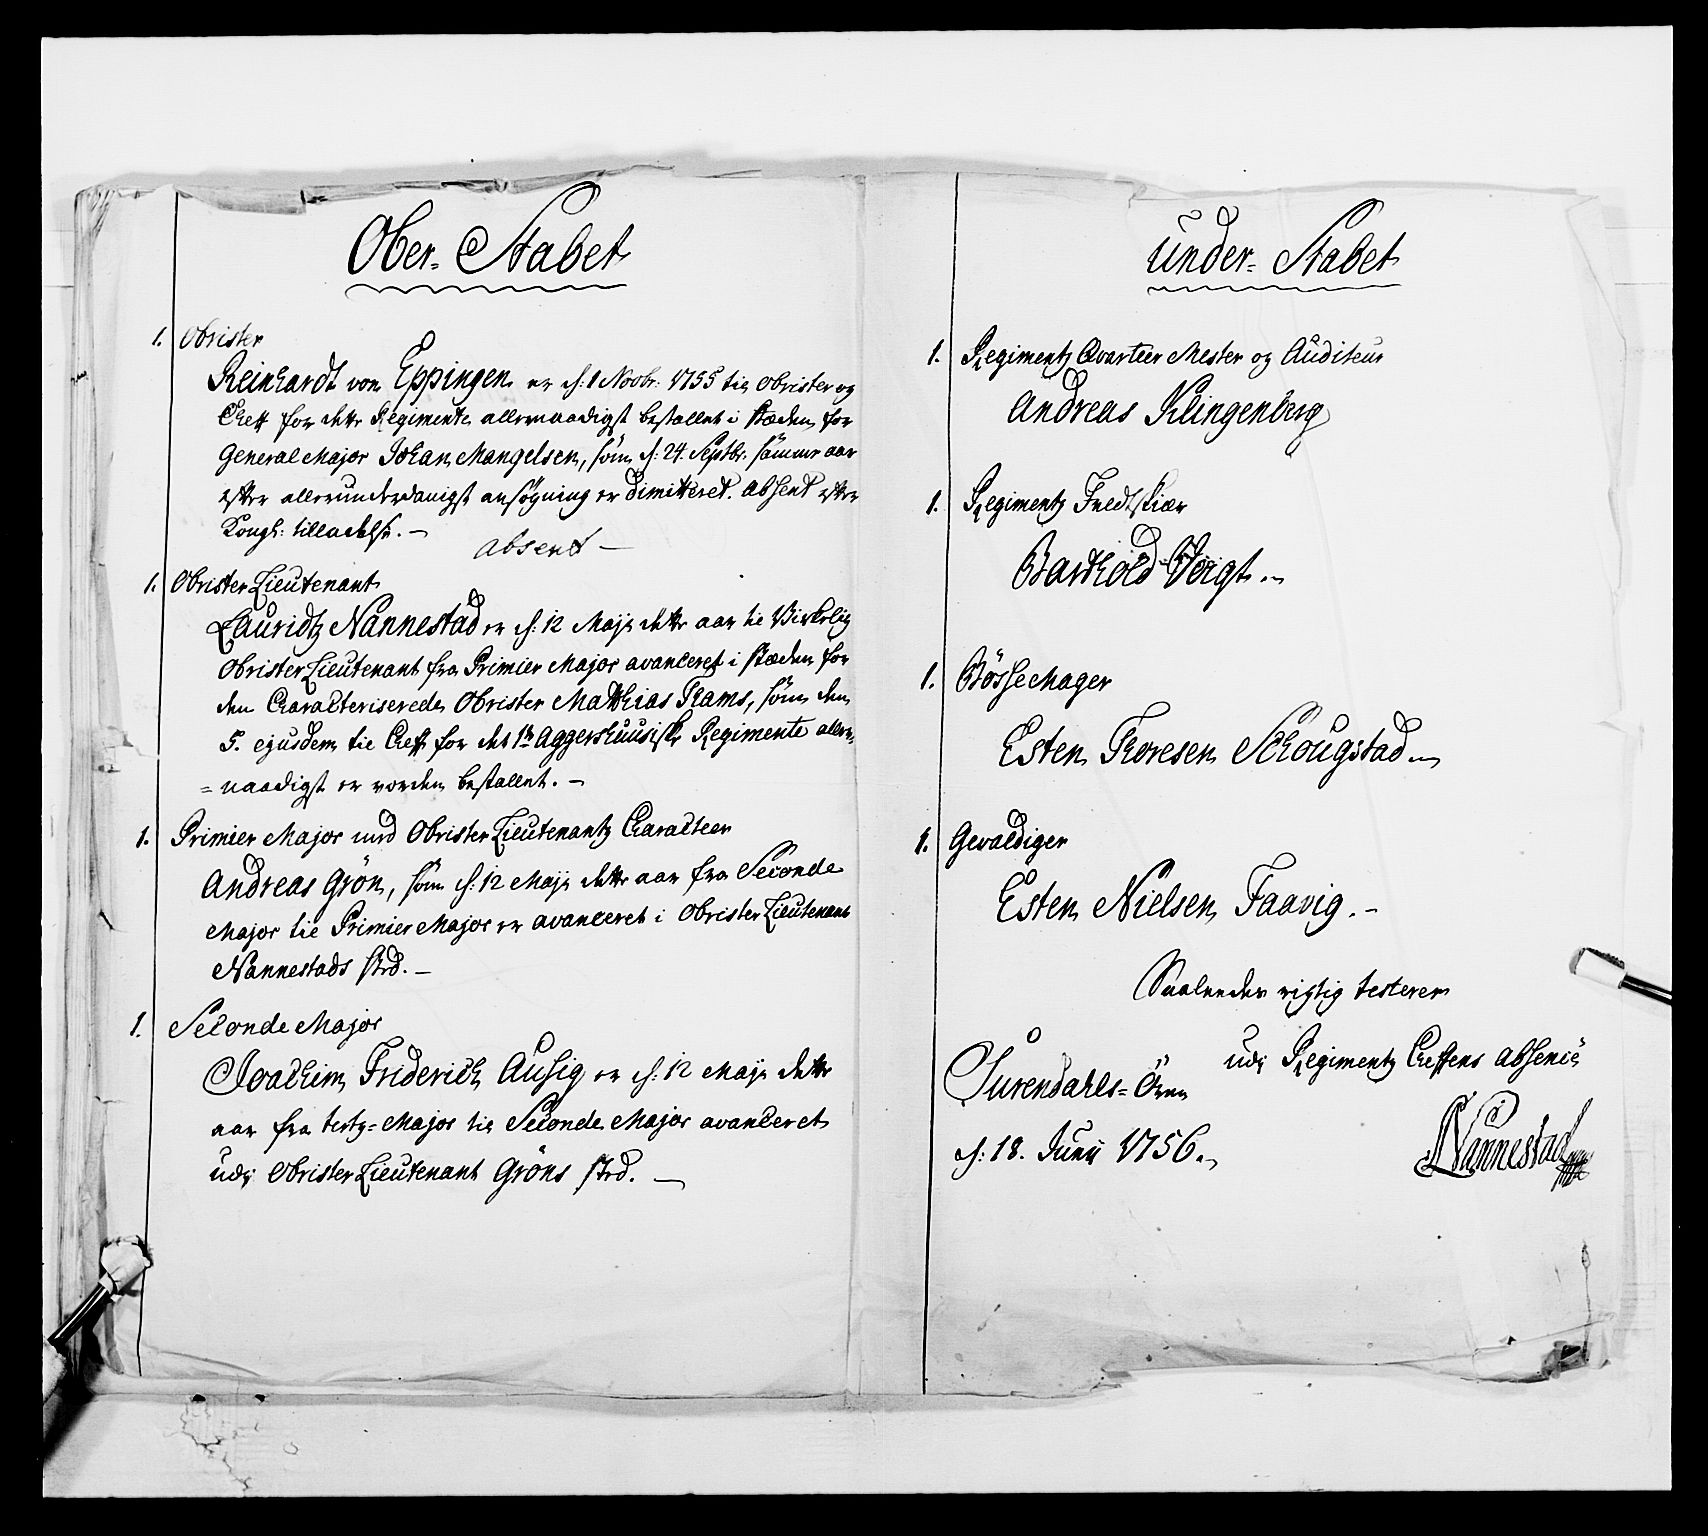 Ober= Stabet
1. Obrister
Reinhardt von Eppingen er d: 1 Novbr: 1755 til Obrister og
Cheff for dette Regimente allernaadigst bestallet i stæden for
General Major Johan Mangelsen, som d: 24 Septbr: samme aar
efter allerunderdanigst ansøgning er dimitteret. Absent efter
Kongl: tilladelse. —
absent —
1. Obrister Lieutenant
Lauridtz Nannestad er d: 12 Maji dette aar til Virkelig
Obrister Lieutenant fra Primier Major avanceret i stæden for
den Characteriserede Obrister Matthias Rams, som den
5. ejusdem til Cheff for det 1te Aggershuusiske Regimente aller=
=naadigst er vorden bestallet. —
1. Primier Major med Obrister Lieutenantz Caracteer
Andreas Grön, som d: 12 Maji dette aar fra Seconde
Major til Primier Major er avanceret i Obrister Lieutenant
Nannestads sted. —
1. Seconde Major
Joachim Friderich Ausig er d: 12 Maji dette
aar fra tertz=Major til Seconde Major avanceret
udi Obrister Lieutenant Gröns sted. —
Under= Stabet
1. Regimentz Qvarteer Mester og Auditeur
Andreas Klingenberg
1. Regimentz Feldtskiær
Barthold Voigt.
1. Bösse Mager
Esten Thoresen Schougstad
1. Gevaldiger
Esten Nielsen Faavig. —
Saaleedes rigtig testerer
udi Regimentz Cheffens absence
Surendahls=Ören
d: 18. Junii 1756.
Nannestad